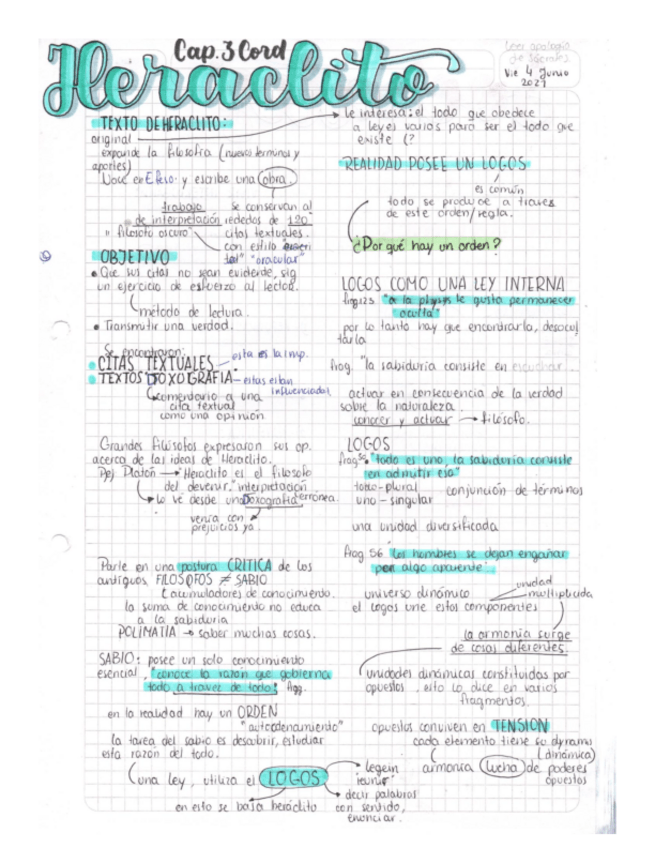 Cap. 3 Cord
Heraclito
Leer apología
de Sócrates
Vie 4 Junio
2021
TEXTO DE HERACLITO:
original
expande la filosofía (nuevos terminos y
aportes)
Nace en Efeso y escribe una obra.
trabajo
de interpretación
"filosofo oscuro"
se conservan al
rededos de 120
citas textuales.
con estilo
"oracular"
OBJETIVO
• Que sus citas no sean evidente, sig
un ejercicio de esfuerzo al lector.
método de lectura.
• Transmitir una verdad.
Se encontraron:
• CITAS TEXTUALES - esta es la imp.
• TEXTOS DOXOGRAFIA - estas estan
influenciadas
comentario a una
cita textual
como una opinión
Grandes filosofos expresaron sus op.
acerca de las ideas de Heraclito.
Pej Platón → "Heraclito es el filosofo
del devenir," interpretación
Lo ve desde una Doxografia erronea.
venia con
prejuicios ya
Parte en una postura CRITICA de los
antiguos, FILOSOFOS ≠ SABIO
acumuladores de conocimiento.
la suma de conocimiento no educa
a la sabiduria
POLIMATIA → saber muchas cosas.
SABIO: posee un solo conocimiento
esencial, "conoce la razón que gobierna
todo a travez de todo"
en la realidad hay un ORDEN
"autoordenamiento"
la tarea del sabio es descubrir, estudiar
esta razón del todo.
una ley, utiliza el LOGOS
legein
"reunir"
decir palabras
con sentido,
enunciar.
en esto se basa heráclito
le interesa: el todo que obedece
a leyes varios para ser el todo que
existe (?
REALIDAD POSEE UN LOGOS
es común
todo se produce a traves
de este orden/regla.
¿Por qué hay un orden?
LOGOS COMO UNA LEY INTERNA
frag 123 "a la physys le gusta permanecer
oculta"
por lo tanto hay que encontrarla, desocul
tarla
frag. "la sabiduria consiste en escuchar...
actuar en consecuencia de la verdad
sobre la naturaleza.
conocer y actuar → filósofo.
LOGOS
frag 50 "todo es uno, la sabiduría consiste
en admitir esa"
todo - plural
uno - singular
conjunción de términos
una unidad diversificada
frag 56 "Los hombres se dejan engañar
por algo aparente"
universo dinámico
unidad
multiplicida
el logos une estos componentes
la armonia surge
de cosas diferentes.
unidades dinámicas constituidas por
opuestos, esto lo dice en varios
fragmentos.
opuestos conviven en TENSION
cada elemento tiene su dynamis
(dinámica)
armonica lucha de poderes
opuestos